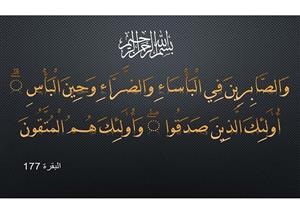 بسم الله الرحمن الرحيم
وَالصَّابِرِينَ فِي الْبَأْسَاءِ وَالضَّرَّاءِ وَحِينَ الْبَأْسِ ۗ
أُولَٰئِكَ الَّذِينَ صَدَقُوا ۖ وَأُولَٰئِكَ هُمُ الْمُتَّقُونَ
البقرة 177